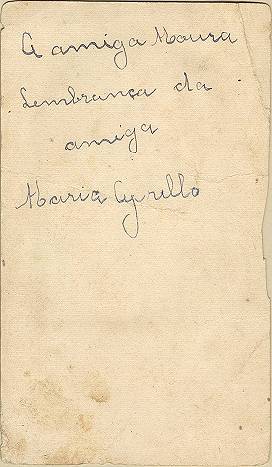 A amiga Moura
Lembrança da
amiga
Maria Cyrillo